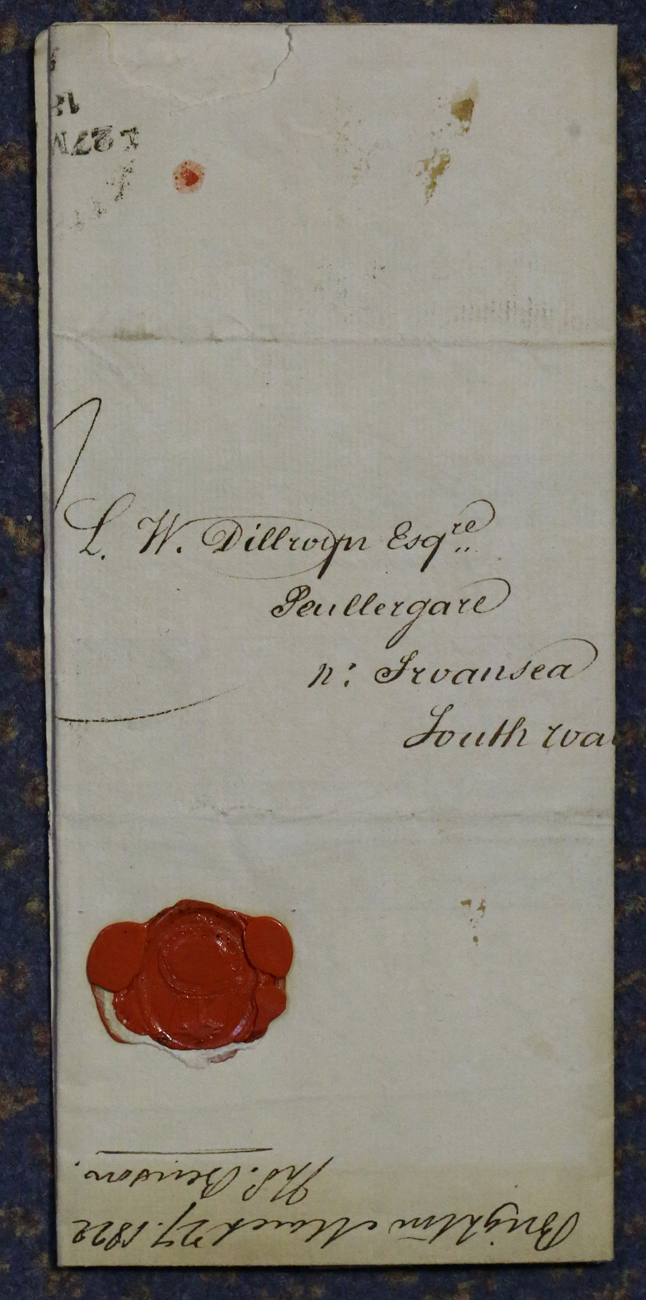 L. W. Dillwyn Esqre
Penllergare
nr: Swansea
South Wa
Brighton March 27. 1822
27 M
18